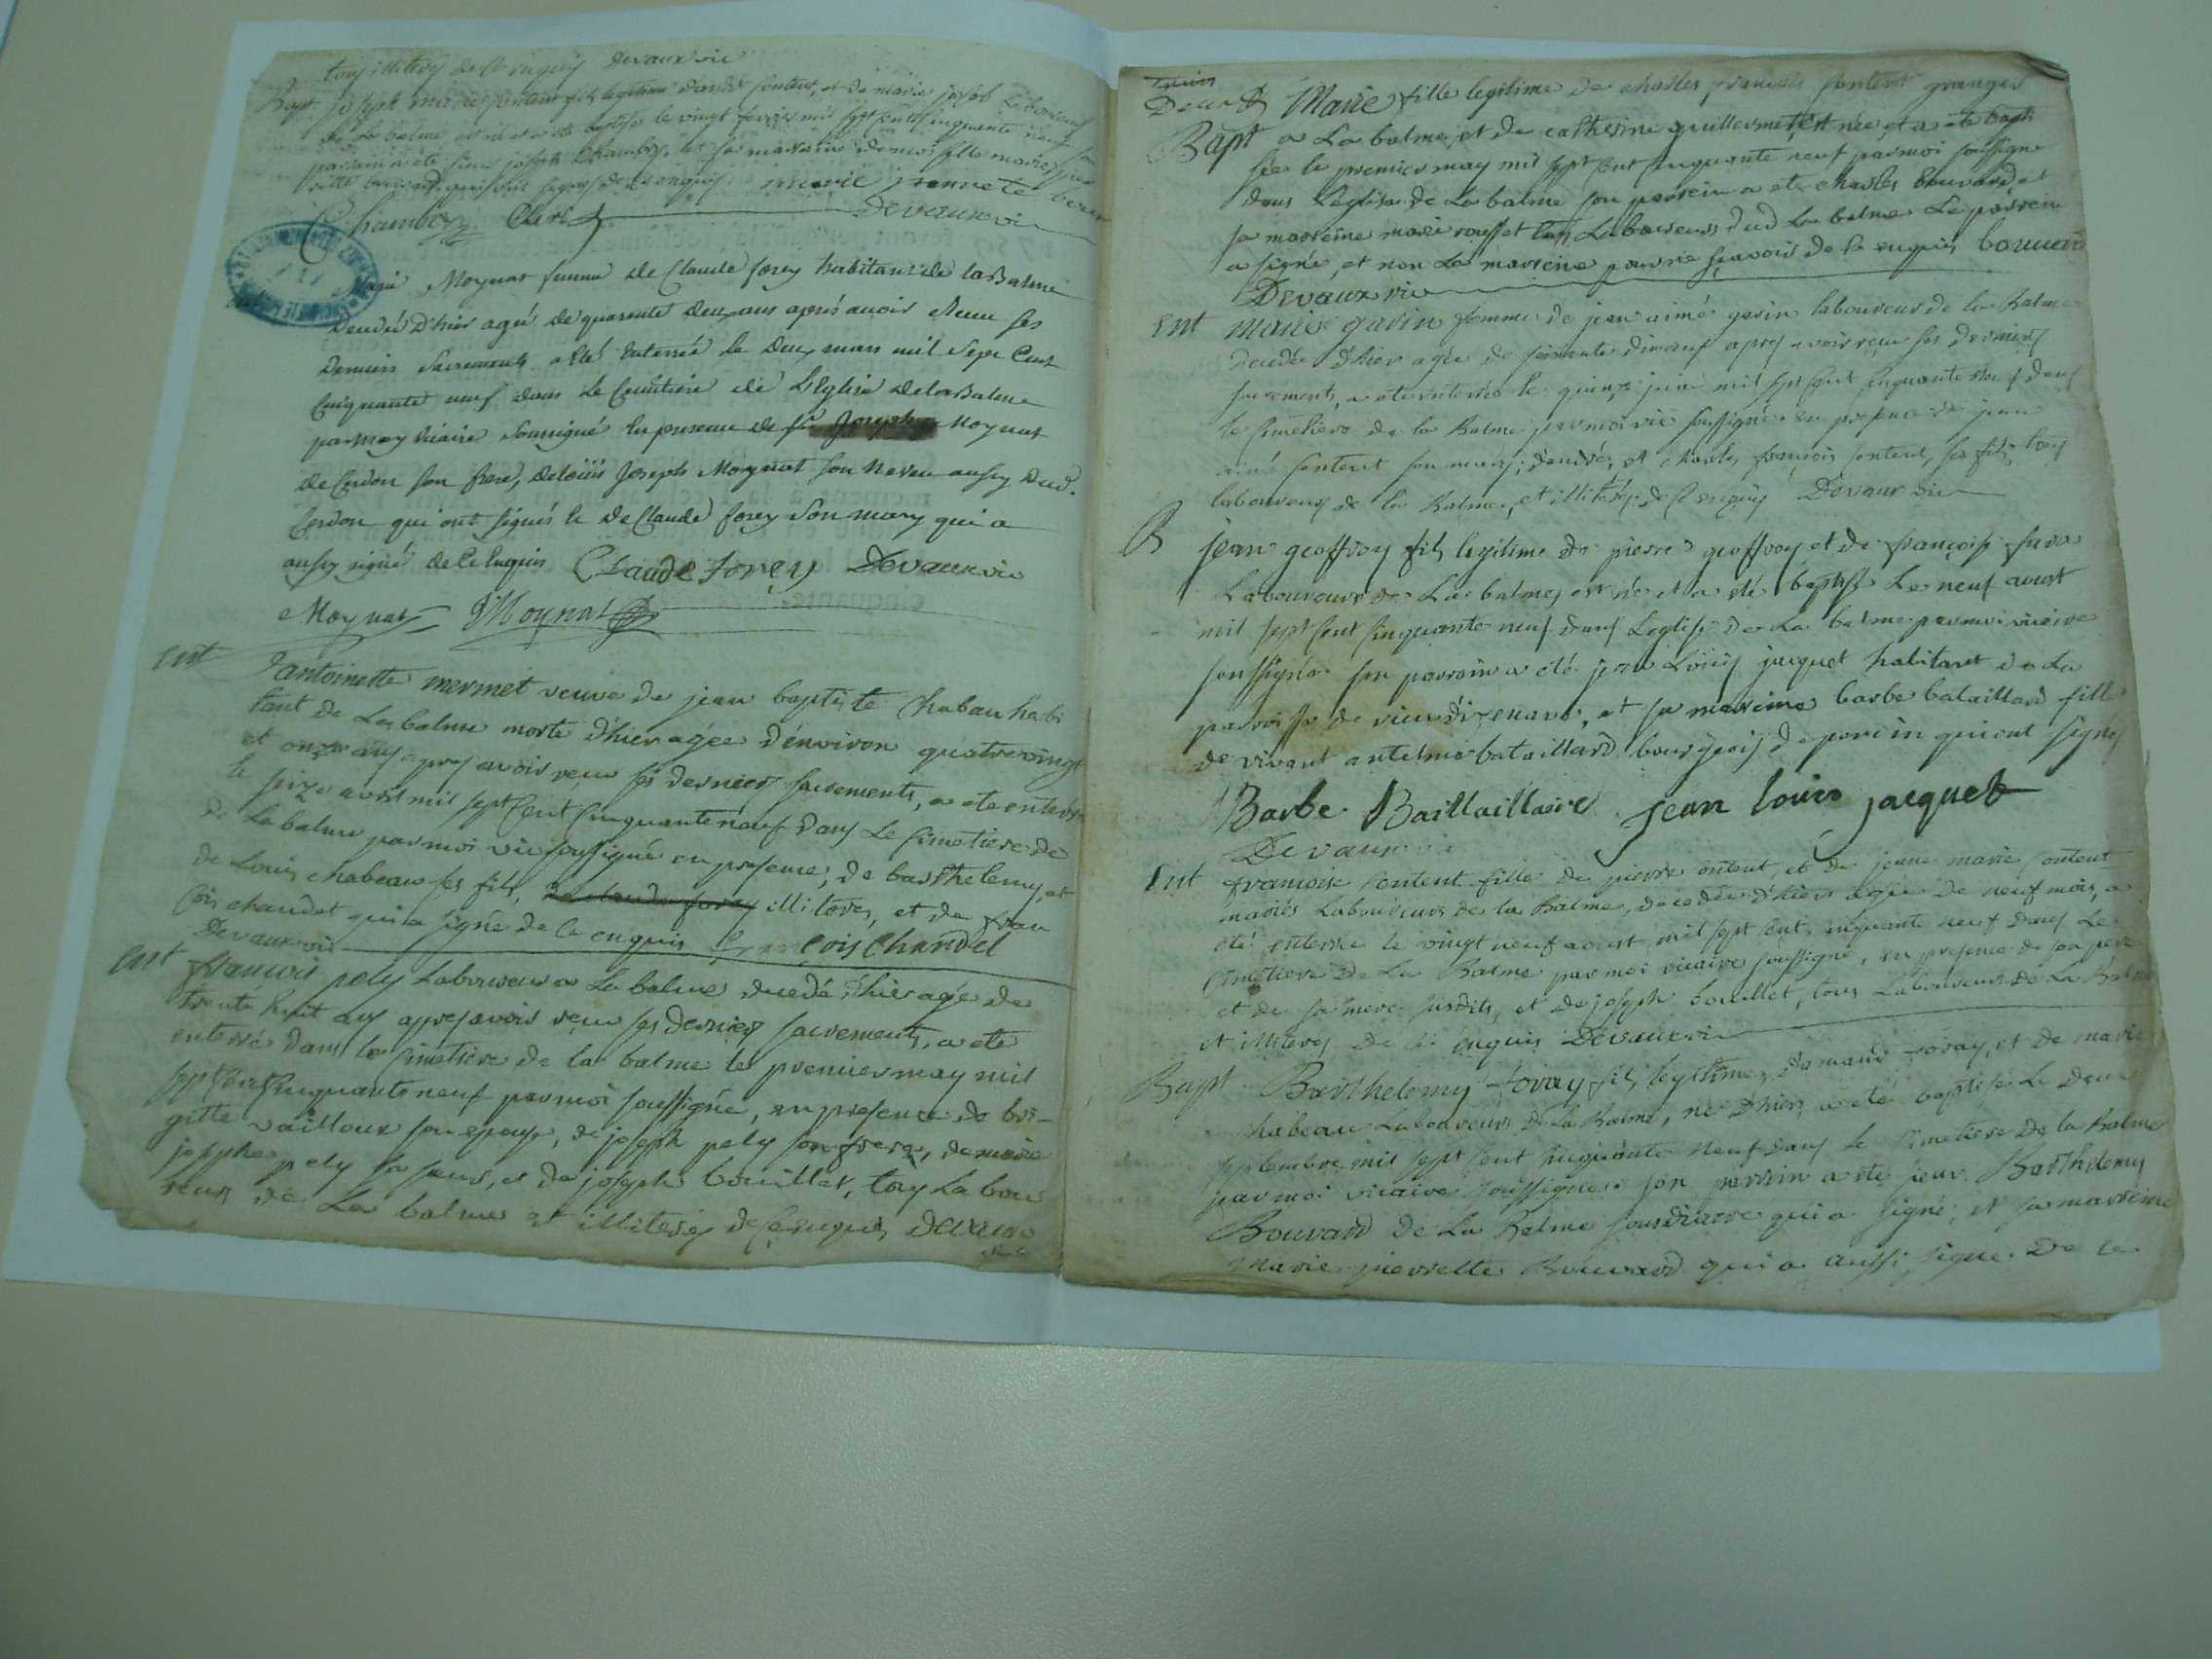 tous illiterés de ce enquis Devaux vic
Bapt joseph marie fils legitime et de marie
de la balme est né et a été baptisé le vingt fevrier mil sept cent cinquante neuf son
parrain a été sieur joseph Chamboz et sa marraine demoiselle marie
qui ont signés de ce enquis. marie jannete
Chamboz Clerc Devaux vi
Marie Moynat femme de Claude forey habitant de la Balme
Decedée D'hier ageé de quarente deux ans aprés avoir Receu ses
Derniers Sacrements a été enterrée le Deux mars mil Sept Cent
Cinquante neuf dans le Cimetiere de L'Eglise de la Balme
par moy vicaire Soussigné en presence de sr Joseph Moynat
de Cerdon son frere, de loüis Joseph Moynat son neveu aussy dud.
Cerdon qui ont signés & De Claude forey son mary qui a
aussy signé de ce Enquis Claude forey Devaux vic
Moynat Moynat
Ent antoinette mermet veuve de jean baptiste Chabau habi
tant de La balme morte d'hier agée d'environ quatre vingt
et onze ans apres avoir reçeu ses derniers sacrements, a ete enterrée
le seize avril mil sept Cent Cinquante neuf dans Le Cimetiere de
de La balme par moi vic soussigné en presence, de barthelemy, et
de Louis chabeau ses fils, illiterés, et de fran
çois chaudet qui a signé de ce enquis françois Chandel
Devaux vic
Ent francois pely Laboureur a La balme decedé d'hier agée de
trente huit ans apres avoir reçeu ses derniers sacrements, a ete
enterré dans le Cimetiere de la balme le premier may mil
sept Cent Cinquante neuf par moi soussignée, en presence de bri-
gitte vailloux son epouse, de joseph pely son frere, de marie
josephe pely sa sœur, et de joseph bouillet, tous Labou
reurs de La balme et illiterés de ce enquis Devaux
vic
Marie fille legitime de charles françois fontent granger
Bapt a La balme, et de catherine guillermet est née, et a eté bapti
sée le premier may mil sept cent cinquante neuf par moi soussigné
dans L'eglise de La balme son parrein a eté charles bouvard, et
sa marreine marie rousset tous Laboureurs dud La balme Le parrein
a signé, et non La marreine pour ne sçavoir de ce enquis bouvard
Devaux vic
Ent marie gavin femme de jean aimé laboureur de la Balme
decedée d'hier agée de soixante dix neuf apres avoir reçu ses derniers
sacrements, a ete enterrée le quinze juin mil sept Cent Cinquante neuf dans
le Cimetiere de la Balme par moi vic soussigné en presence de jean
aimé fontent son mary, d'andré, et charles françois fontent, ses fils, tous
laboureurs de la Balme, et illiterés de ce enquis Devaux vic
B jean geoffray fils legitime de pierre geoffray et de françoise
Laboureurs de La balme, est né et a eté baptisé Le neuf aoust
mil sept Cent Cinquante neuf dans L'eglise de La balme par moi vicaire
soussigné son parrain a eté jean Loüis jacquet habitant de La
paroisse de vieu d'izenave, et sa marreine barbe bataillard fille
de vivant antelme bataillard bourgeois de poncin qui ont signés
Barbe Baillaillard jean louis jacquet
Devaux vic
Ent francoise fontent fille de pierre fontent, et de jeanne marie fontent
mariés Laboureurs de la Balme, decedée d'hier agée de neuf mois, a
eté enterrée le vingt neuf aoust mil sept Cent cinquante neuf dans Le
Cimetiere de La Balme par moi vicaire soussigné, en presence de son pere
et de sa mere susdits, et de joseph bouillet, tous Laboureurs de La Balme
et illiterés de ce enquis Devaux vi
Bapt Barthelemy foray fils legitime d'amand foray, et de marie
chabeau Laboureurs de La Balme, né d'hier a eté baptisé Le deux
septembre mil sept Cent cinquante neuf dans le Cimetiere de la Balme
par moi vicaire soussigné. son parrain a eté sieur Barthelemy
Bouvard de La Balme sousdiacre qui a signé, et sa marreine
marie pierrette Bouvard qui a aussi signé. De ce